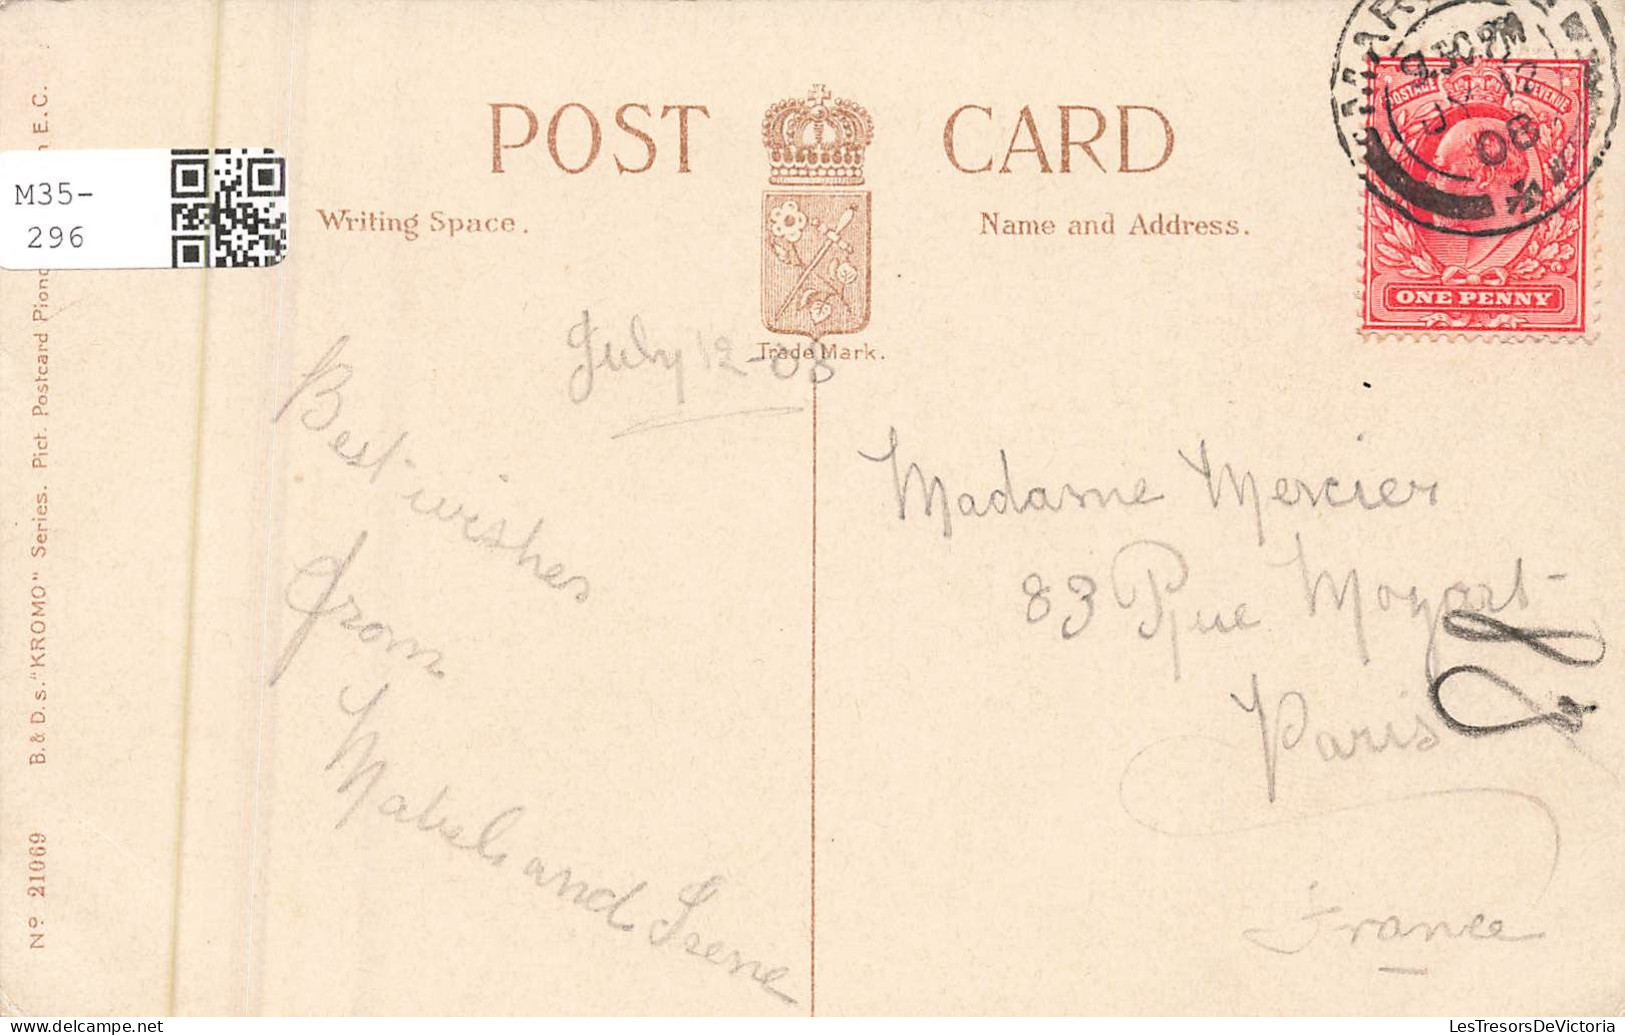 POST CARD
M35-
296
Writing Space.
Name and Address.
Trade Mark.
July 12-08
Best wishes
from
Mabel and Irene
Madame Mercier
83 Rue Mozart
Paris
France
9.30 PM
JY 12
08
POSTAGE REVENUE
ONE PENNY
No 21069 B. & D. s. "KROMO" Series. Pict. Postcard E.C.
www.LesTresorsDeVictoria.com